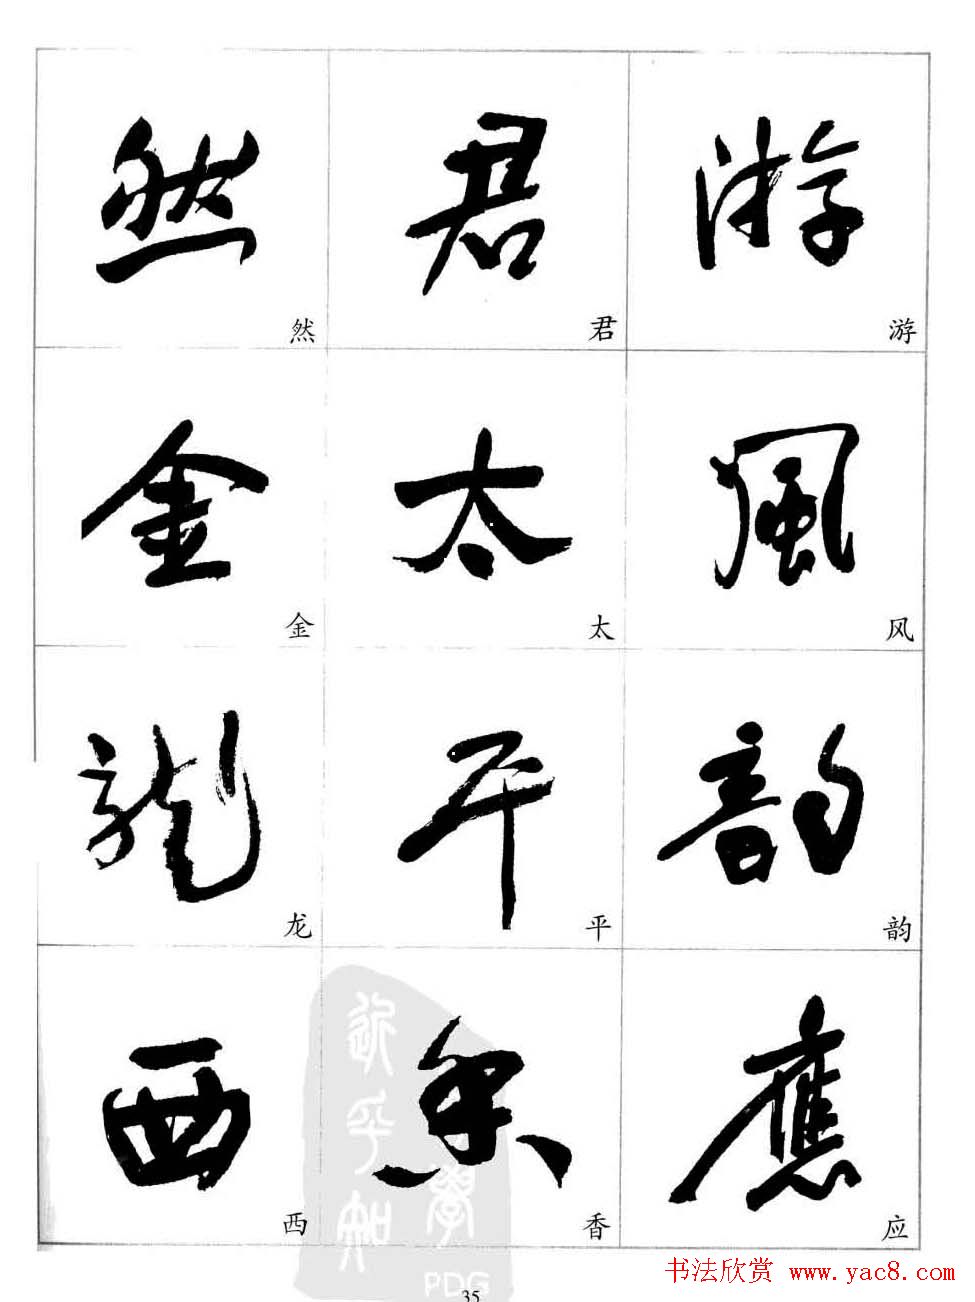 然 君 游
然 君 游
金 太 風
金 太 风
龍 平 韵
龙 平 韵
西 香 應
西 香 应
學
近乎知
PDG
35
书法欣赏 www.yac8.com